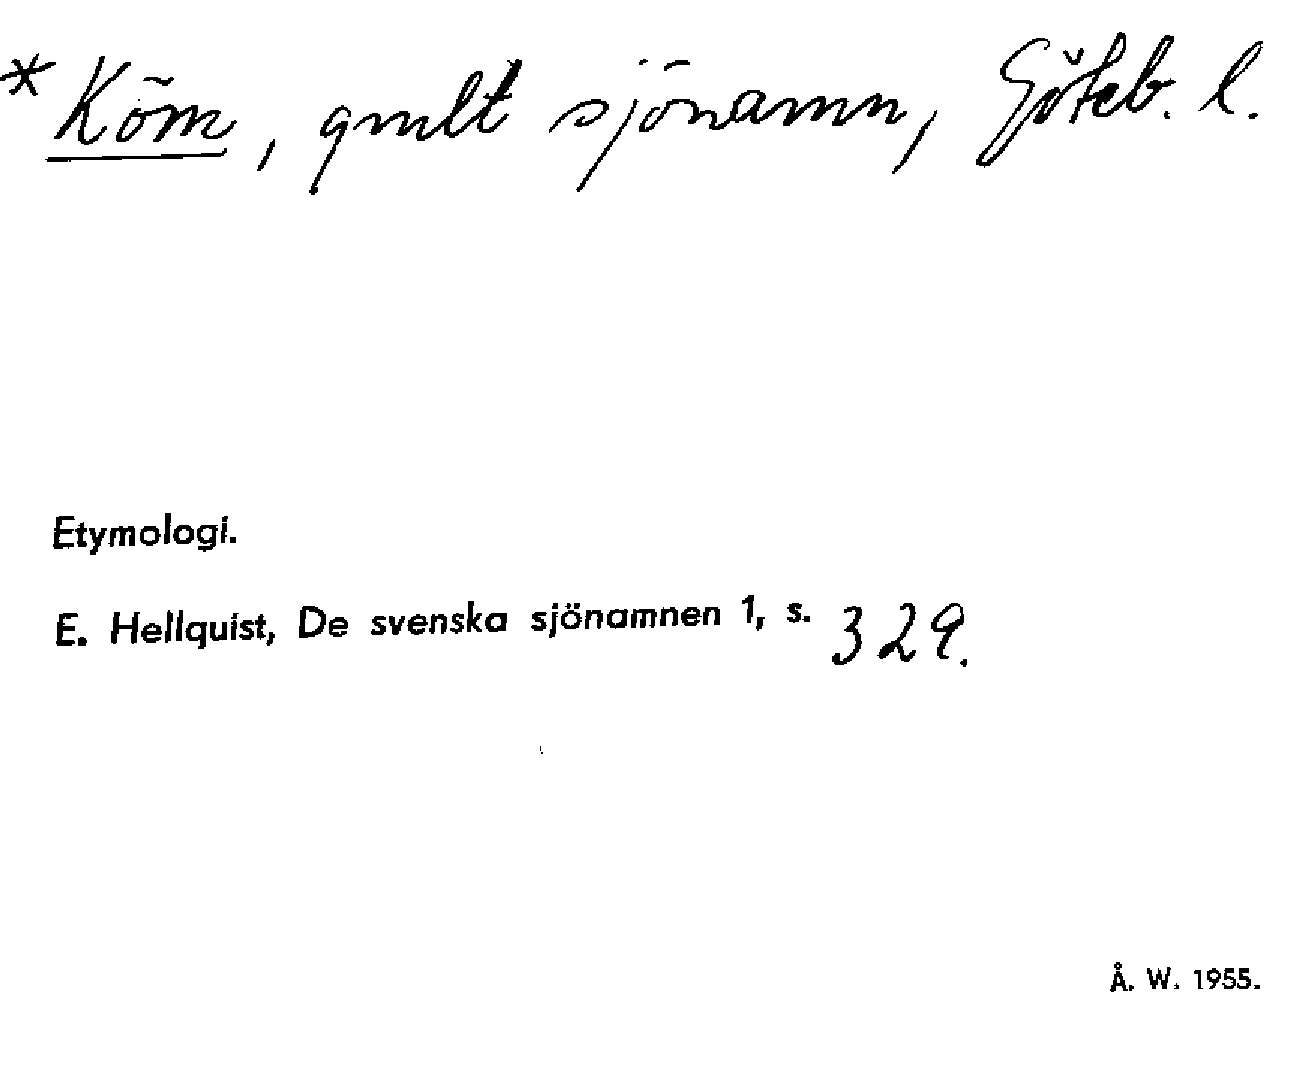 *Köm, gmlt sjönamn, Göteb. l.
Etymologi.
E. Hellquist, De svenska sjönamnen 1, s. 329.
Å. W. 1955.